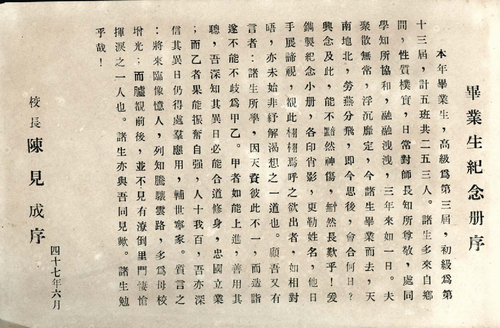 畢業生紀念册序
本年畢業生，高級爲第三屆，初級爲第
十三屆，計五班共二五三人。諸生多來自鄉
間，性質樸實，日常對師長知所尊敬，處同
學知所協和，融融洩洩，三年來如一日。夫
聚散無常，浮沉靡定，今諸生畢業而去，天
南地北，勞燕分飛，即今思後，會合何日？
興念及此，能不黯然神傷，然長歎乎！爰
鐫製紀念小册，各印肖影，更勒姓名，他日
手展諦視，觀此栩栩焉呼之欲出者，如相對
晤，亦未始非紓解渴想之一道也。顧吾又有
言者：諸生所學，因天資彼此不一，而造詣
遂不能不歧爲甲乙。甲者如能上進，善用其
聰，吾深知其異日必能合道修身，忠國立業
；而乙者果能振奮自强，人十我百，吾亦深
信其異日仍得處羣應用，輔世寧家。質言之
：將來臨像憶人，列知騰驤雲路，多爲母校
增光；而臚觀前後，並不見有潦倒里門悽愴
揮淚之一人也。諸生亦與吾同見歟。諸生勉
乎哉！
校長 陳見成序
四十七年六月